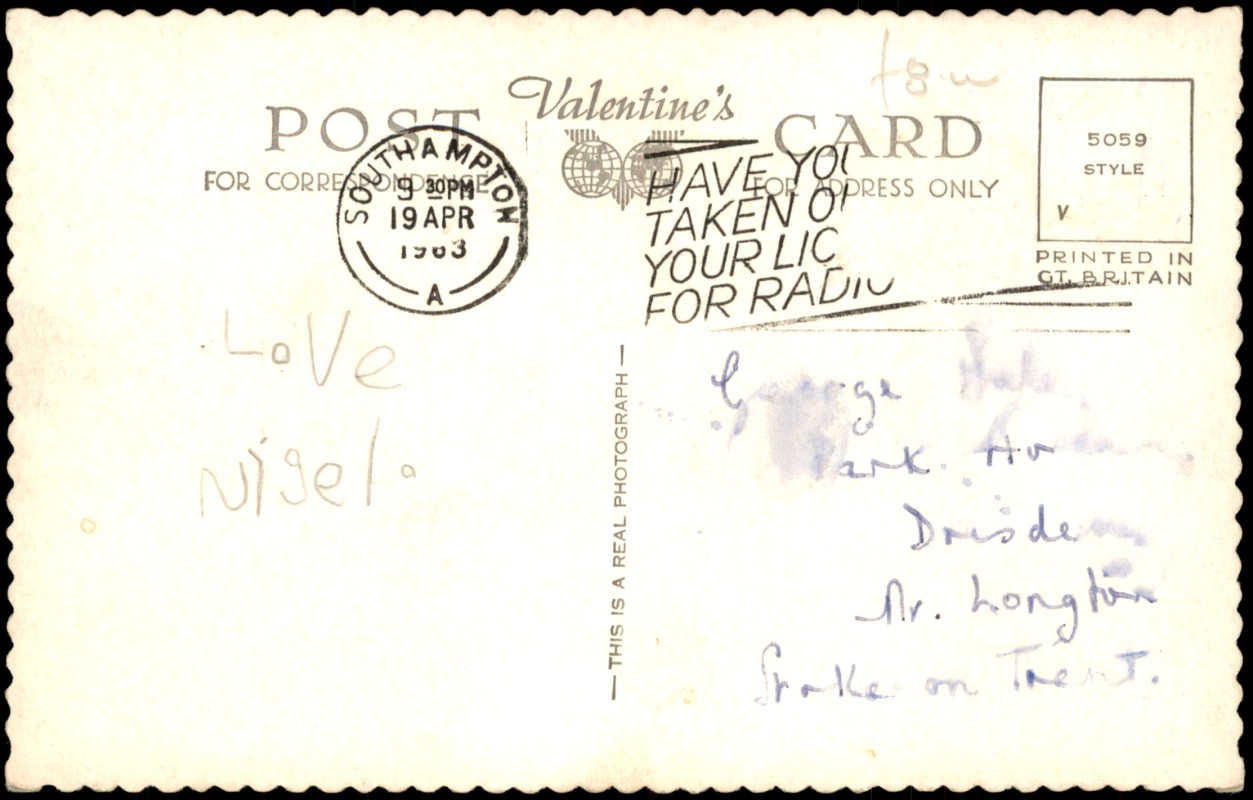 Valentine's
POST CARD
FOR CORRESPONDENCE
FOR ADDRESS ONLY
SOUTHAMPTON
9 30PM
19 APR
1963
A
HAVE YOU
TAKEN O
YOUR LIC
FOR RADIO
5059
STYLE
V
PRINTED IN
GT. BRITAIN
Love
Nigel.
THIS IS A REAL PHOTOGRAPH
George
Park.
Drisden
Nr. Longton
Stoke on Trent.